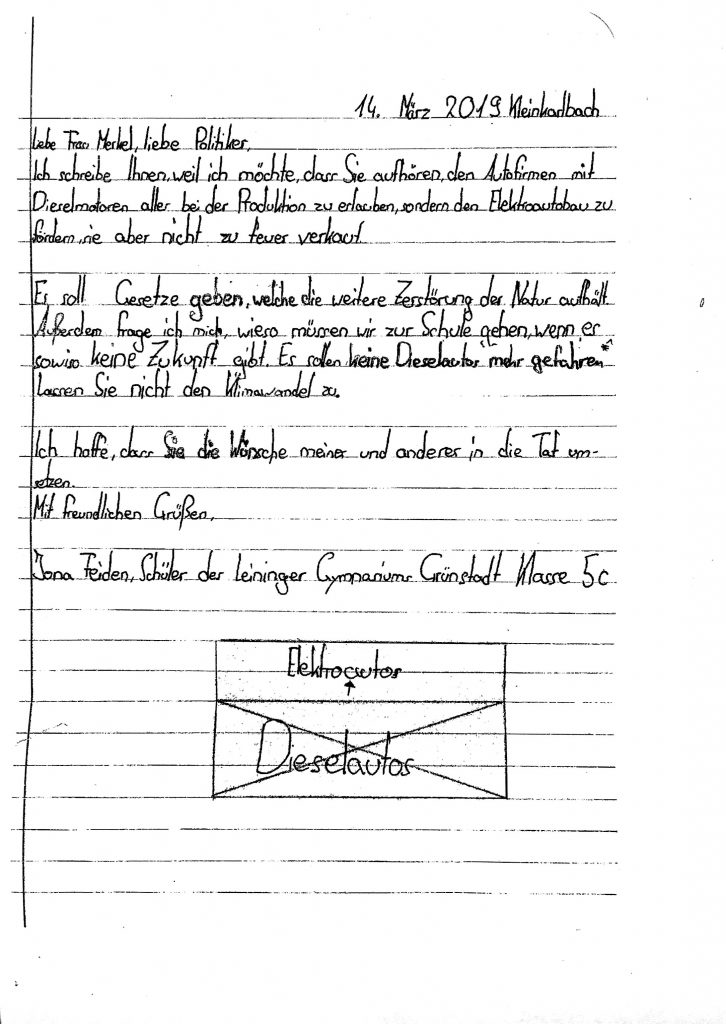 14. März 2019 Kleinkarlbach
Liebe Frau Merkel, liebe Politiker,
Ich schreibe Ihnen, weil ich möchte, dass Sie aufhören, den Autofirmen mit
Dieselmotoren alles bei der Produktion zu erlauben, sondern den Elektroautobau zu
fördern, sie aber nicht zu teuer verkauft
Es soll Gesetze geben, welche die weitere Zerstörung der Natur aufhält.
Außerdem frage ich mich, wieso müssen wir zur Schule gehen, wenn es
sowiso keine Zukunft gibt. Es sollen keine Dieselautos "mehr gefahren"
Lassen Sie nicht den Klimawandel zu.
Ich hoffe, dass Sie die Wünsche meiner und anderer in die Tat um-
setzen.
Mit freundlichen Grüßen,
Jona Feiden, Schüler des Leininger Gymnasiums Grünstadt Klasse 5c
Elektroautos
Dieselautos